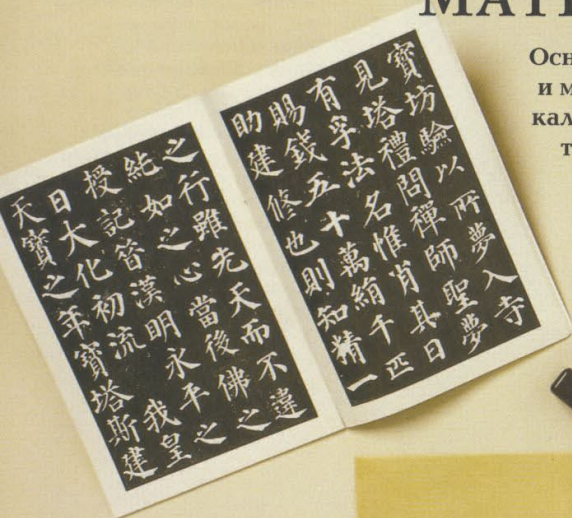 МАТЕ
Осн
и м
кал
т
寶坊驗以所夢入寺
見塔禮問禪師聖夢
有孚法名惟肖其日
賜錢五十萬絹千匹
助建修也則知精一
之行雖先天而不違
純如之心當後佛之
授記昔漢明永平之
日大化初流 我皇
天寶之年寶塔斯建